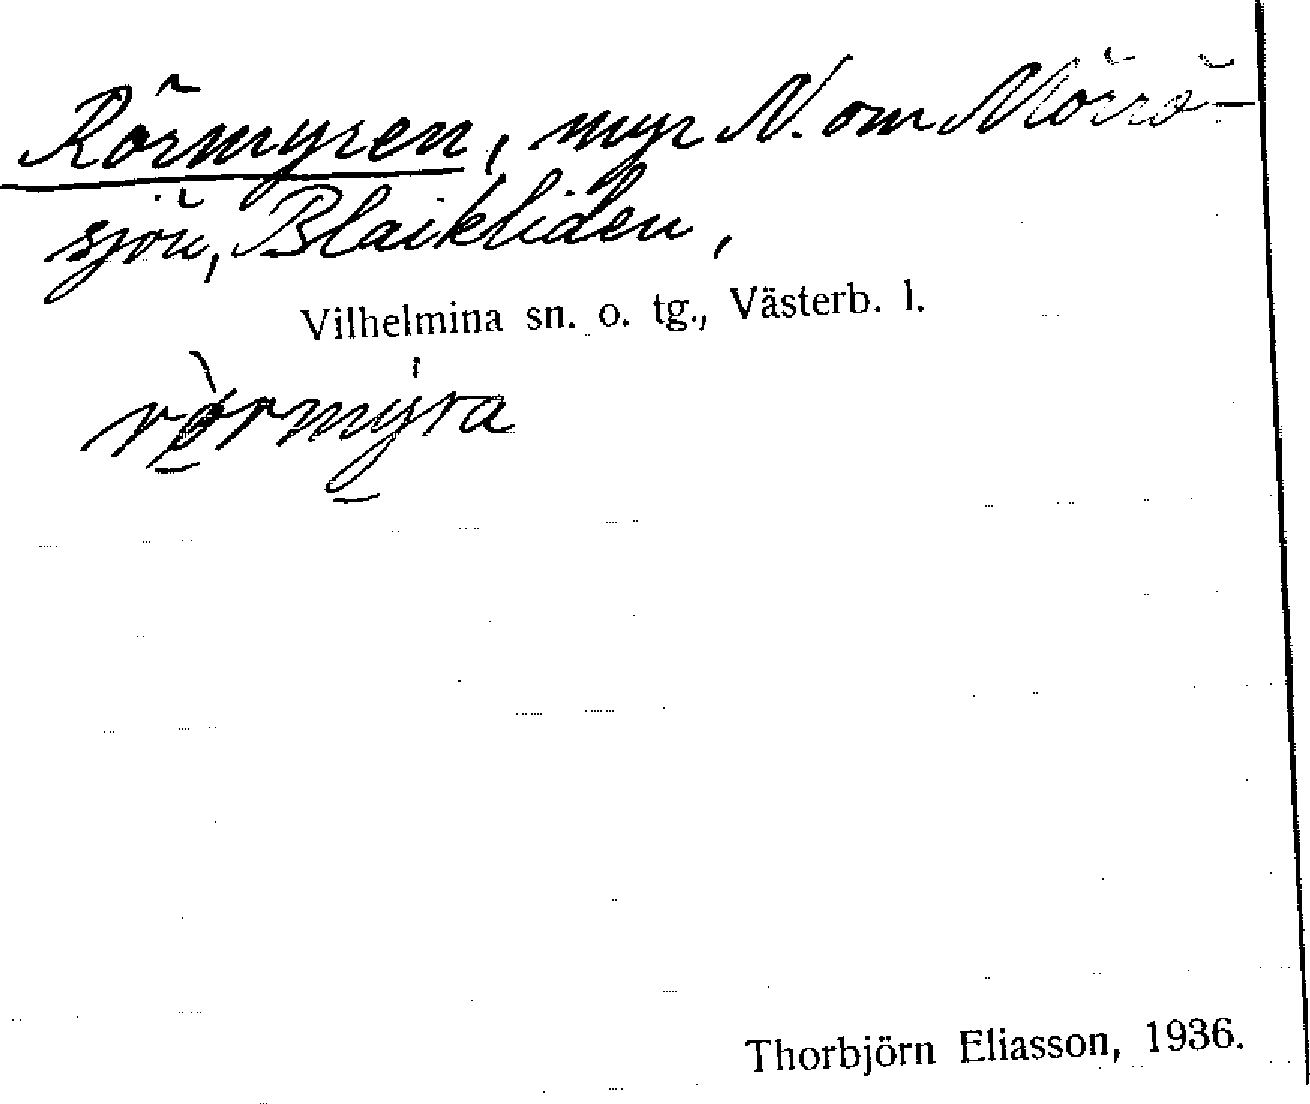 Rörmyren, myr N. om Mörrö-
sjön, Blaikliden,
Vilhelmina sn. o. tg., Västerb. l.
rørmyra
Thorbjörn Eliasson, 1936.